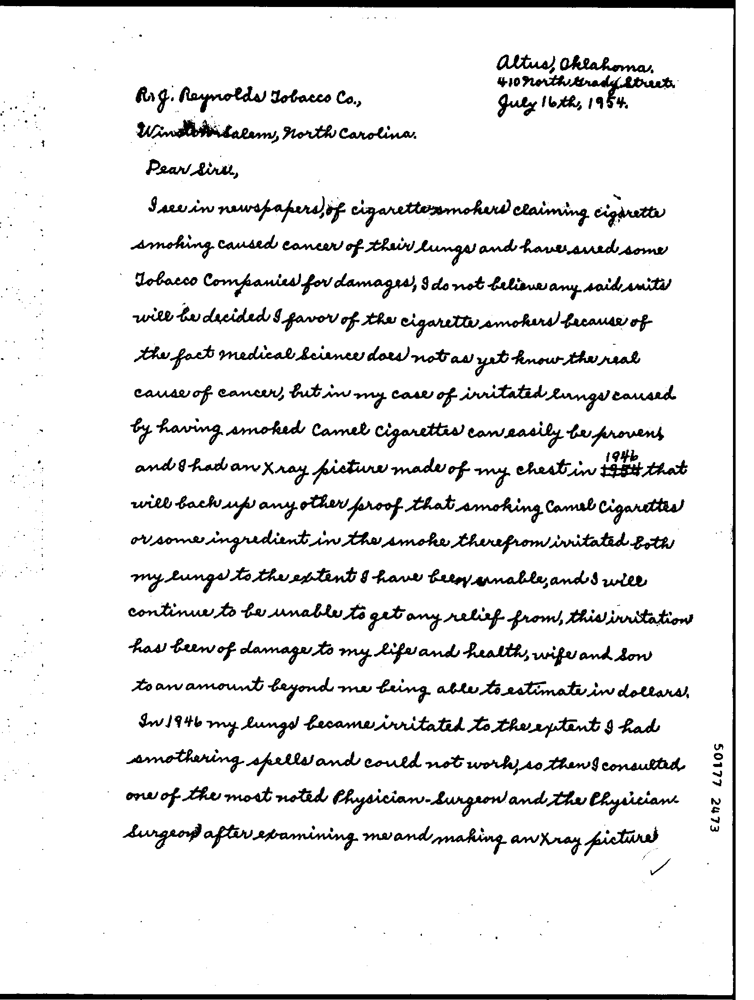 Altus, Oklahoma.
410 North Grady Street.
July 16th, 1954.
R. J. Reynolds Tobacco Co.,
Winston Salem, North Carolina.
Dear Sirs,
I see in newspapers, of cigarette smokers claiming cigarette
smoking caused cancer of their lungs and have sued some
Tobacco Companies for damages, I do not believe any said suits
will be decided I favor of the cigarette smokers because of
the fact medical Science does not as yet know the real
cause of cancer, but in my case of irritated lungs caused
by having smoked Camel Cigarettes can easily be proven,
and I had an X ray picture made of my chest in 1954 1946 that
will back up any other proof that smoking Camel Cigarettes
or some ingredient in the smoke therefrom irritated both
my lungs to the extent I have been unable, and I will
continue to be unable to get any relief from, this irritation
has been of damage to my life and health, wife and Son
to an amount beyond me being able to estimate in dollars.
In 1946 my lungs became irritated to the extent I had
smothering spells and could not work, so then I consulted
one of the most noted Physician-Surgeon and the Physician
Surgeon after examining me and making an X ray picture
50177 2473